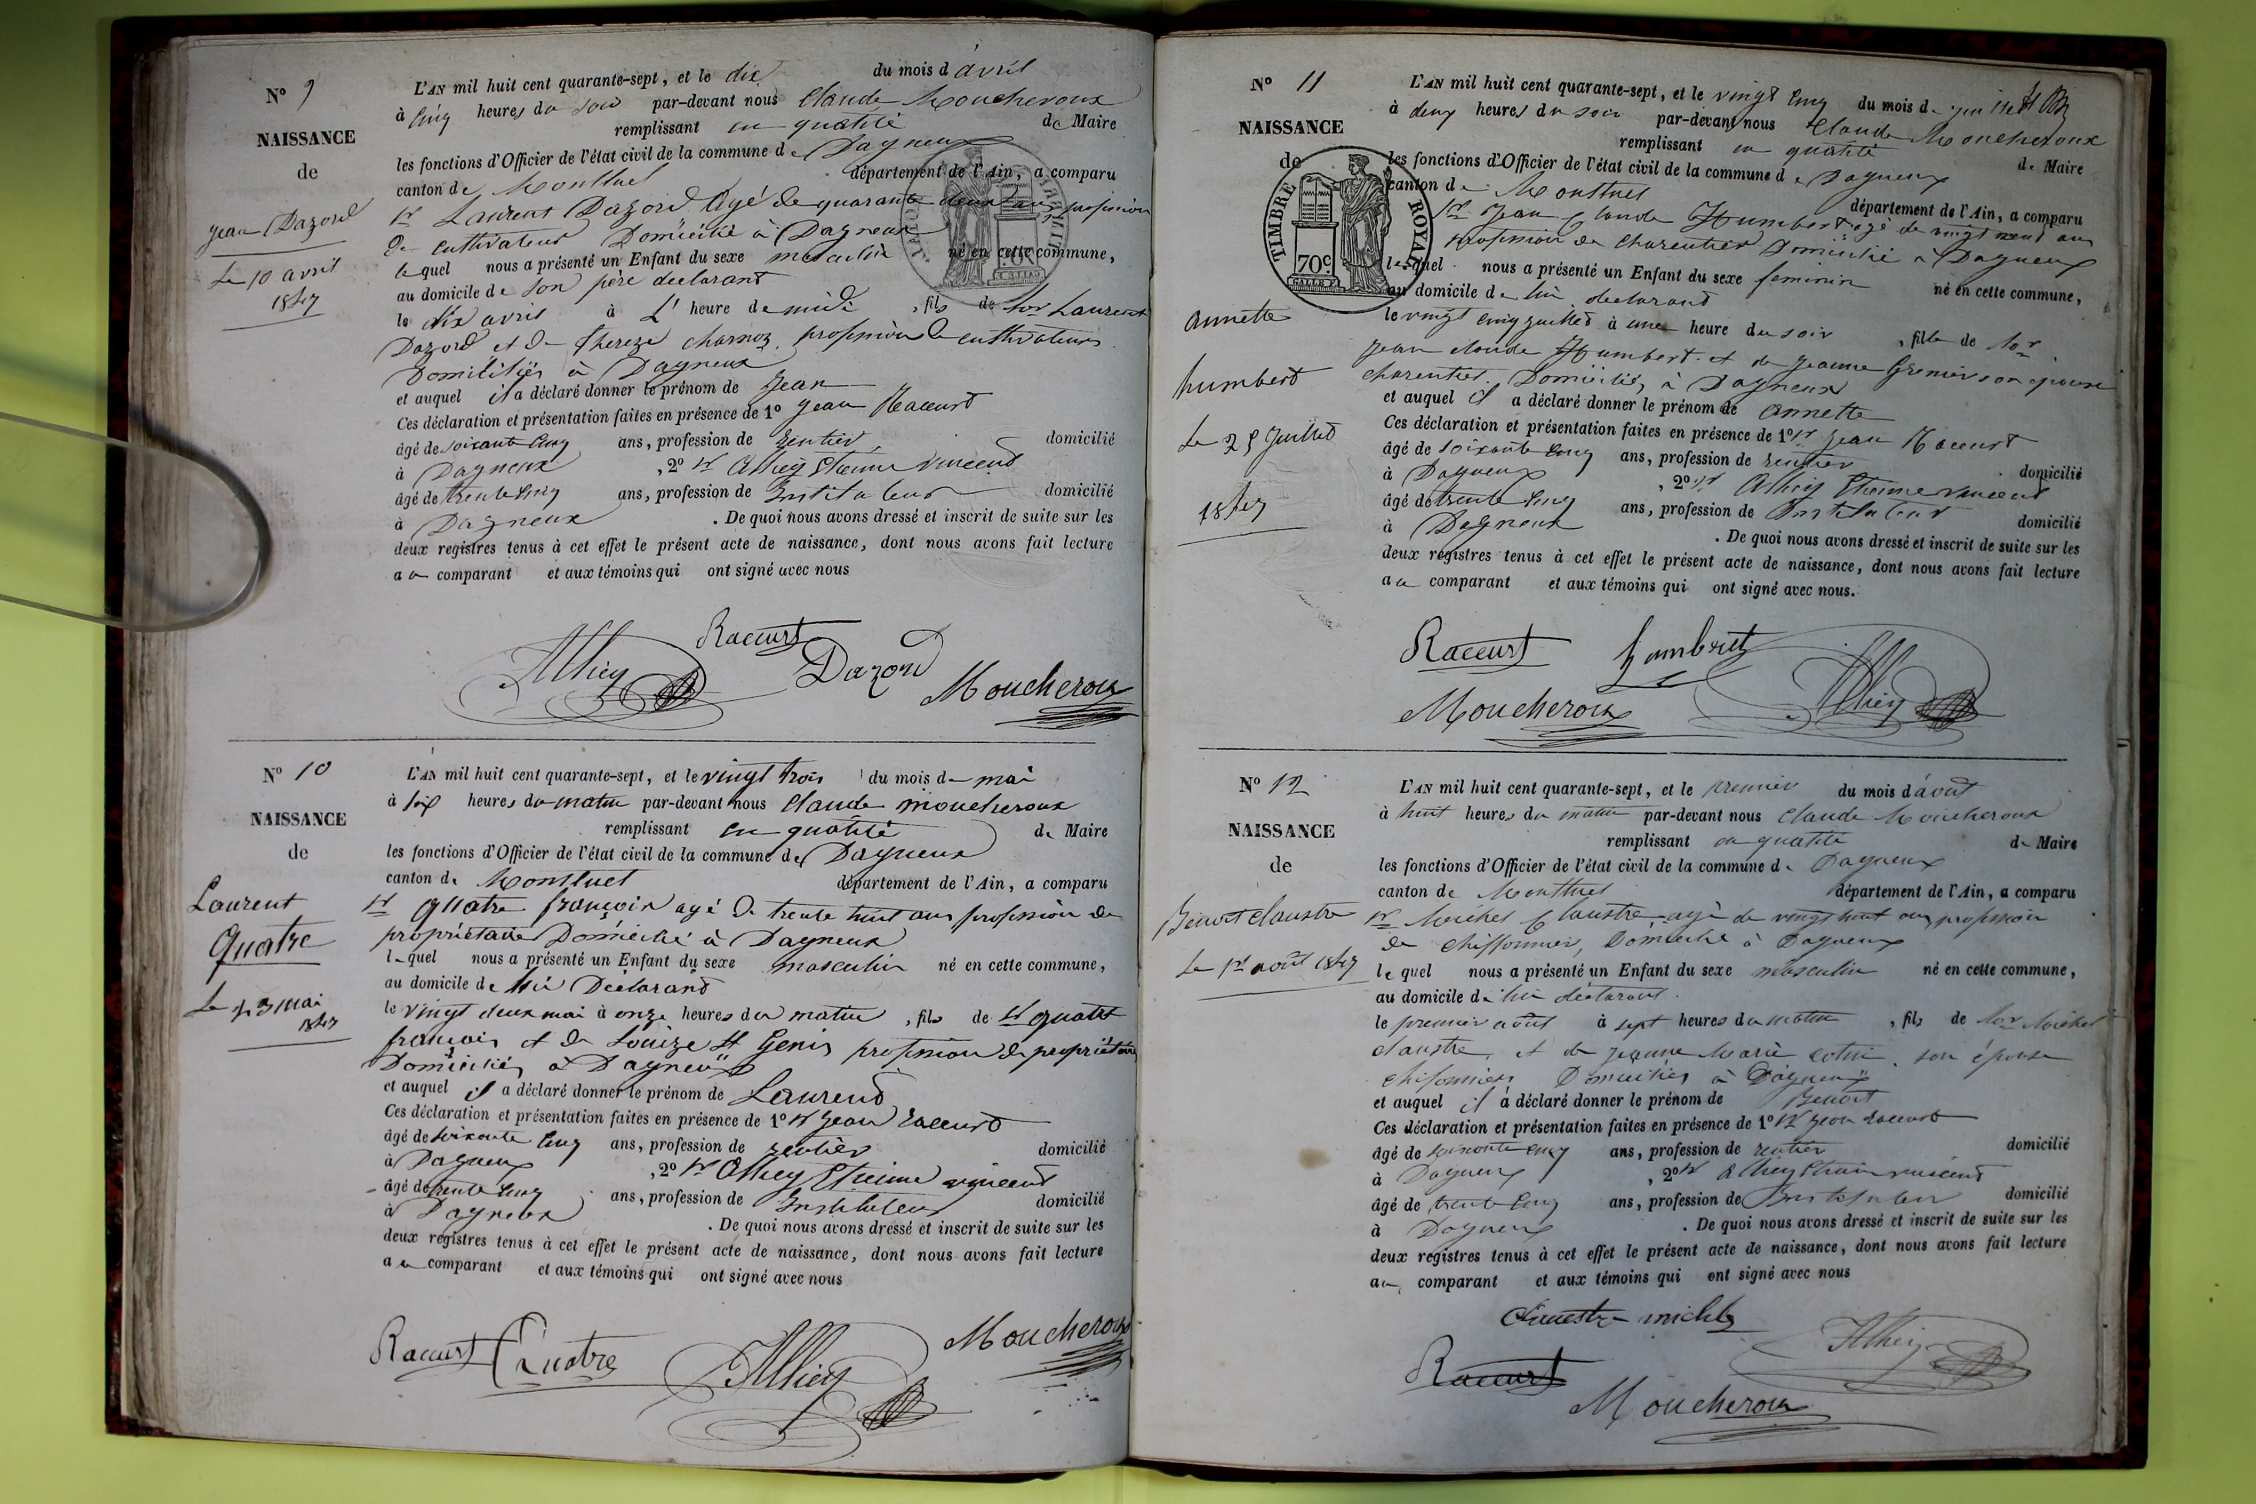 N° 9
NAISSANCE
de
Jean Dazord
Le 10 avril
1847
L'AN mil huit cent quarante-sept, et le dix du mois d'avril
à cinq heures du soir par-devant nous Claude Moucheroux
remplissant en qualité de Maire
les fonctions d'Officier de l'état civil de la commune de Dagneux
canton de Montluel département de l'Ain, a comparu
sr Laurent Dazord âgé de quarante deux ans, profession
de cultivateur Domicilié à Dagneux
lequel nous a présenté un Enfant du sexe masculin né en cette commune,
au domicile de son père déclarant
le dix avril à l'heure de midi, fils de sr Laurent
Dazord et de Thereze charnoz, profession de cultivateurs
Domiciliés à Dagneux
et auquel il a déclaré donner le prénom de Jean
Ces déclaration et présentation faites en présence de 1° Jean Raccurt
âgé de soixante cinq ans, profession de rentier, domicilié
à Dagneux, 2° sr Athiey Etienne Vincent
âgé de trente cinq ans, profession de Instituteur domicilié
à Dagneux. De quoi nous avons dressé et inscrit de suite sur les
deux registres tenus à cet effet le présent acte de naissance, dont nous avons fait lecture
au comparant et aux témoins qui ont signé avec nous
Raccurt
Athiey Dazord
Moucheroux
N° 10
NAISSANCE
de
Laurent
Quatre
Le 23 mai
1847
L'AN mil huit cent quarante-sept, et le vingt trois du mois de mai
à six heures du matin par-devant nous Claude moucheroux
remplissant en qualité de Maire
les fonctions d'Officier de l'état civil de la commune de Dagneux
canton de Montluel département de l'Ain, a comparu
sr Quatre françois agé de trente huit ans profession de
propriétaire Domicilié à Dagneux
lequel nous a présenté un Enfant du sexe masculin né en cette commune,
au domicile de lui Déclarant
le vingt deux mai à onze heures du matin, fils de sr quatre
françois et de Louize St Genis profession de propriétaires
Domiciliés à Dagneux
et auquel il a déclaré donner le prénom de Laurent
Ces déclaration et présentation faites en présence de 1° sr Jean raccurt
âgé de soixante cinq ans, profession de rentier domicilié
à Dagneux, 2° sr Athiey Etienne vincent
âgé de trente cinq ans, profession de Instituteur domicilié
à Dagneux. De quoi nous avons dressé et inscrit de suite sur les
deux registres tenus à cet effet le présent acte de naissance, dont nous avons fait lecture
au comparant et aux témoins qui ont signé avec nous
Raccurt Quatre Athiey Moucheroux
N° 11
NAISSANCE
de
TIMBRE ROYAL
70c
annette
humbert
Le 25 Juillet
1847
L'AN mil huit cent quarante-sept, et le vingt cinq du mois de juillet
à deux heures du soir par-devant nous Claude Moucheroux
remplissant en qualité de Maire
les fonctions d'Officier de l'état civil de la commune de Dagneux
canton de Montluel département de l'Ain, a comparu
sr Jean Claude Humbert agé de vingt neuf ans
profession de charentier Domicilié à Dagneux
lequel nous a présenté un Enfant du sexe feminin né en cette commune,
au domicile de lui déclarant
le vingt cinq juillet à une heure du soir, fille de sr
Jean claude Humbert et de Jeanne Grenier son épouse
charentier. Domiciliés à Dagneux
et auquel il a déclaré donner le prénom de annette
Ces déclaration et présentation faites en présence de 1° sr Jean Raccurt
âgé de soixante cinq ans, profession de rentier domicilié
à Dagneux, 2° sr Athiey Etienne vincent
âgé de trente cinq ans, profession de Instituteur domicilié
à Dagneux. De quoi nous avons dressé et inscrit de suite sur les
deux registres tenus à cet effet le présent acte de naissance, dont nous avons fait lecture
au comparant et aux témoins qui ont signé avec nous.
Raccurt humbert Athiey
Moucheroux
N° 12
NAISSANCE
de
Benoit Claustre
Le 1er août 1847
L'AN mil huit cent quarante-sept, et le premier du mois d'août
à huit heures du matin par-devant nous Claude Moucheroux
remplissant en qualité de Maire
les fonctions d'Officier de l'état civil de la commune de Dagneux
canton de Montluel département de l'Ain, a comparu
sr Michel Claustre agé de vingt huit ans, profession
de chiffonnier, Domicilié à Dagneux
lequel nous a présenté un Enfant du sexe masculin né en cette commune,
au domicile de lui déclarant
le premier août à sept heures du matin, fils de sr Michel
claustre, et de Jeanne Marie cotin, son épouse
chifonniers Domiciliés à Dagneux
et auquel il a déclaré donner le prénom de Benoit
Ces déclaration et présentation faites en présence de 1° sr Jean raccurt
âgé de soixante cinq ans, profession de rentier domicilié
à Dagneux, 2° sr Athiey Etienne vincent
âgé de trente cinq ans, profession de Instituteur domicilié
à Dagneux. De quoi nous avons dressé et inscrit de suite sur les
deux registres tenus à cet effet le présent acte de naissance, dont nous avons fait lecture
au comparant et aux témoins qui ont signé avec nous
Athiey
Raccurt
Moucheroux